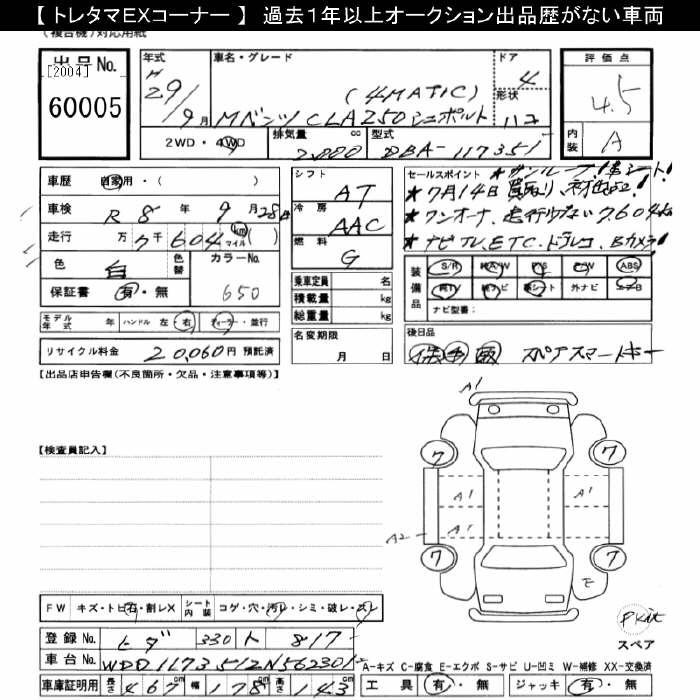 【 トレタマEXコーナー 】 過去1年以上オークション出品歴がない車両
(複合機)対応用紙
出品No.
[2004]
60005
年式 H29/9月
車名・グレード (4MATIC)
Mベンツ CLA250 シュポルト
ドア 4
形状
2WD・4WD 排気量 2,000 cc 型式 DBA-117351
評価点
4.5
内装
A
車歴 自家用・( )
車検 R 8 年 9 月 28日
走行 万 7 千 604 km マイル ( )
色 白 色替 カラーNo. 650
保証書 有・無
モデル年式 年 ハンドル 左・右 ディーラー・並行
リサイクル料金 20,060円 預託済
シフト AT
冷房 AAC
燃料 G
乗車定員 名
積載量 kg
総重量 kg
名変期限
月 日
セールスポイント ★サンルーフ!革シート!
★7月14日 買取り、初出品!
★ワンオーナ、走行少ない7604km
★ナビTV、ETC、ドラレコ、Bカメラ!
装備品 S/R 純A/W P/S P/W ABS
純TV 純ナビ 革シート 外ナビ エアB
ナビ型番:
後日品
保 手 取 スペアスマートキー
【出品店申告欄(不良箇所・欠品・注意事項等)】
A1
7 7
A1 A1
A2 A1
7 7
E
【検査員記入】
FW キズ・トビ石・割レX シート内装 コゲ・穴・汚レ・シミ・破レ・スレ
Pkit
スペア
登録No. ヒダ 330 ト 817
車台No. WDD1173512N562301
A-キズ C-腐食 E-エクボ S-サビ U-凹ミ W-補修 XX-交換済
車庫証明用 長さ 467 cm 幅 178 cm 高さ 143 cm
工具 有・無 ジャッキ 有・無